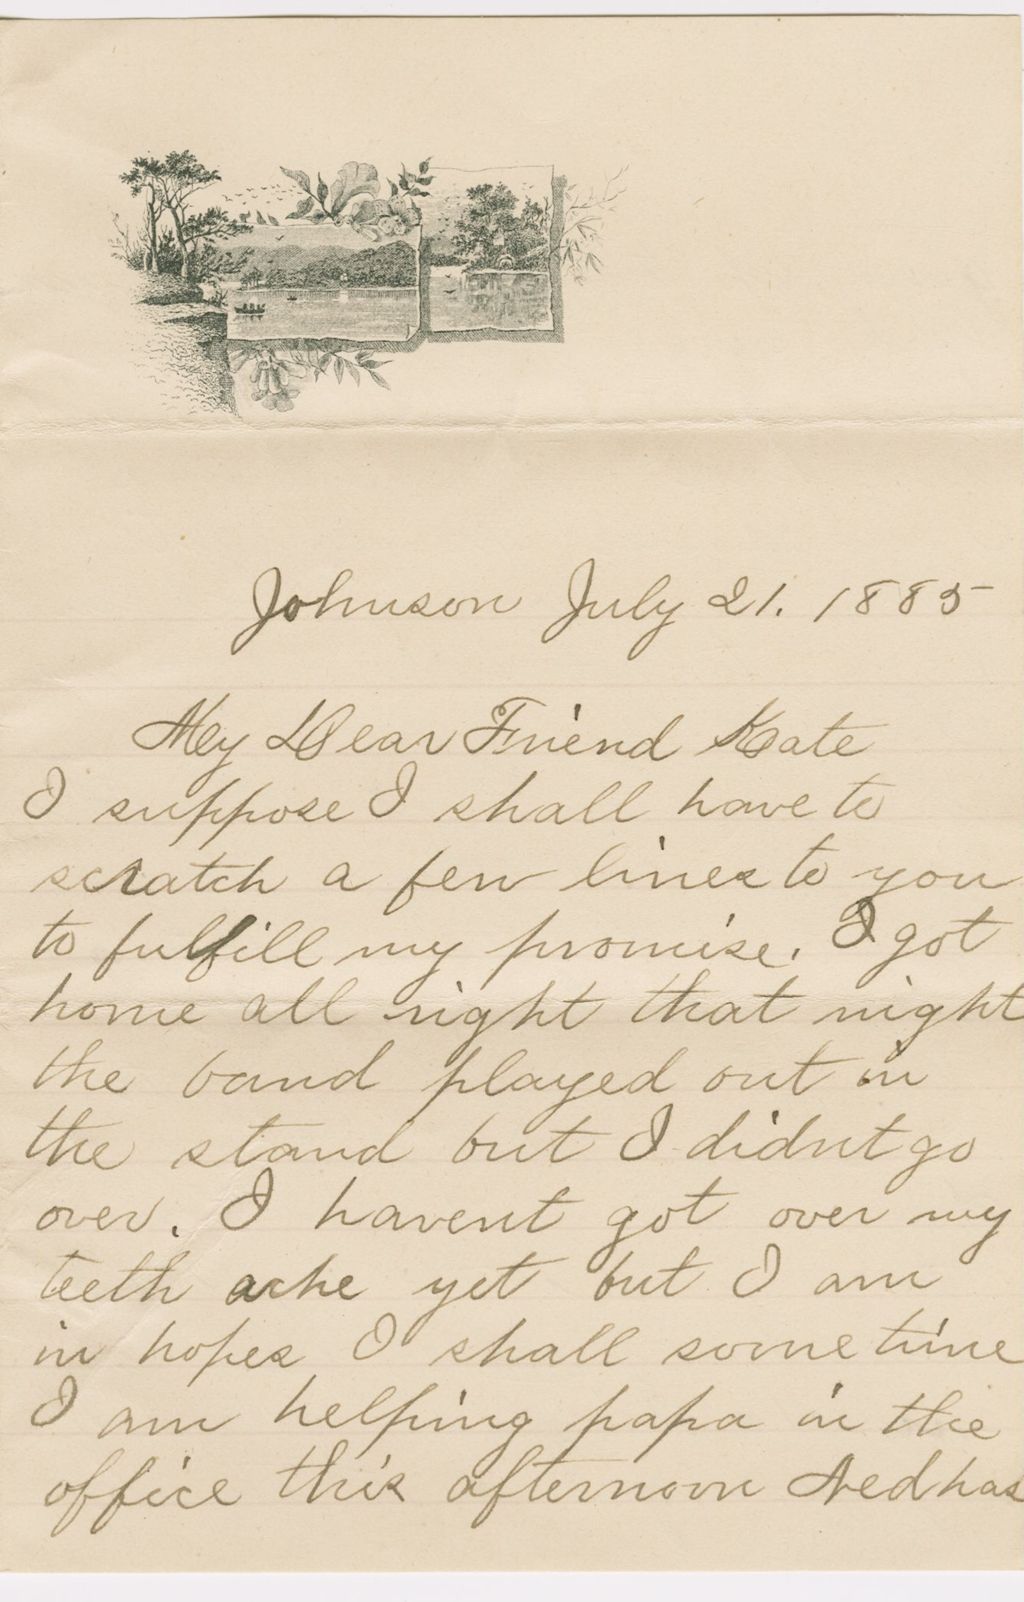 Johnson July 21. 1885
My Dear Friend Kate
I suppose I shall have to
scratch a few lines to you
to fulfill my promise. I got
home all right that night
the band played out in
the stand but I didnt go
over. I havent got over my
teeth ache yet but I am
in hopes I shall some time
I am helping papa in the
office this afternoon Ned has